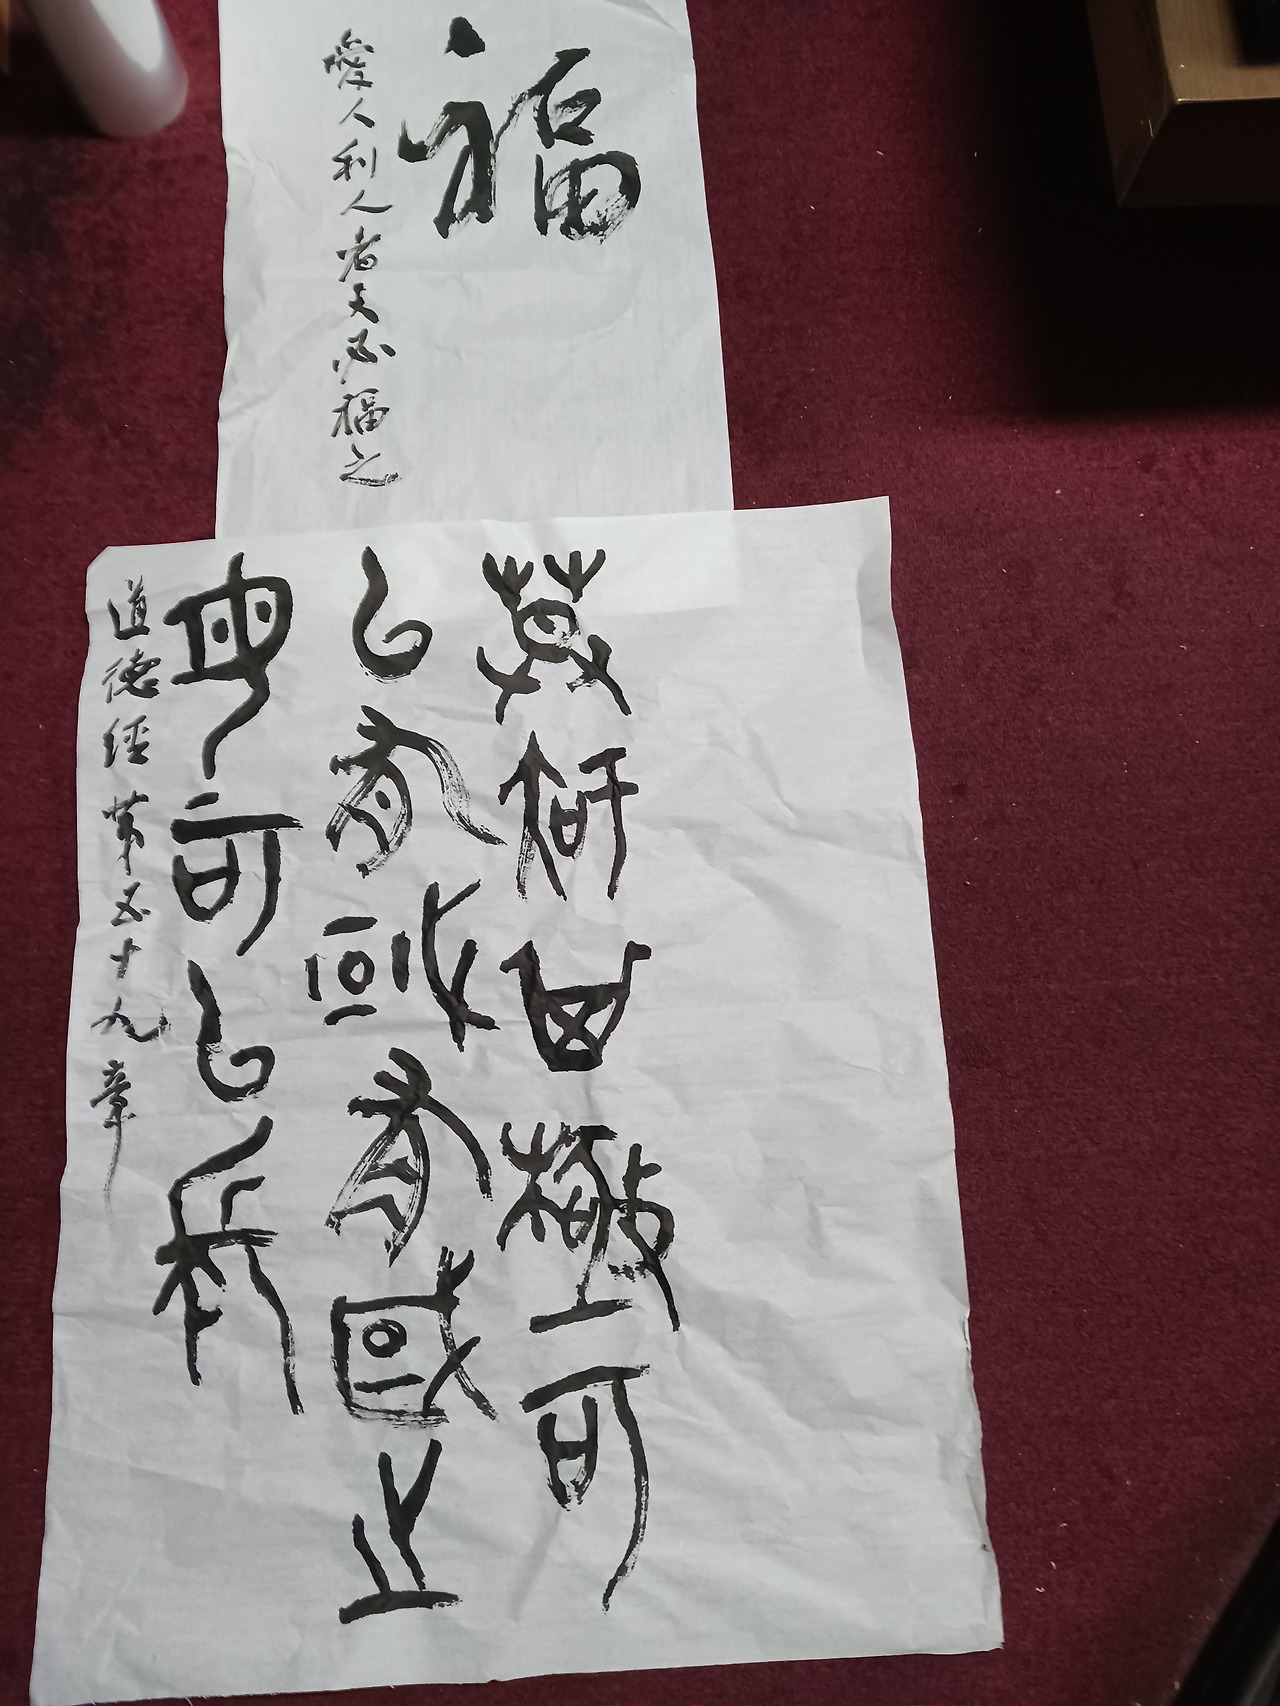 福
愛人利人者天必福之
莫知其極可
以有國有國之
母可以長
道德經第五十九章